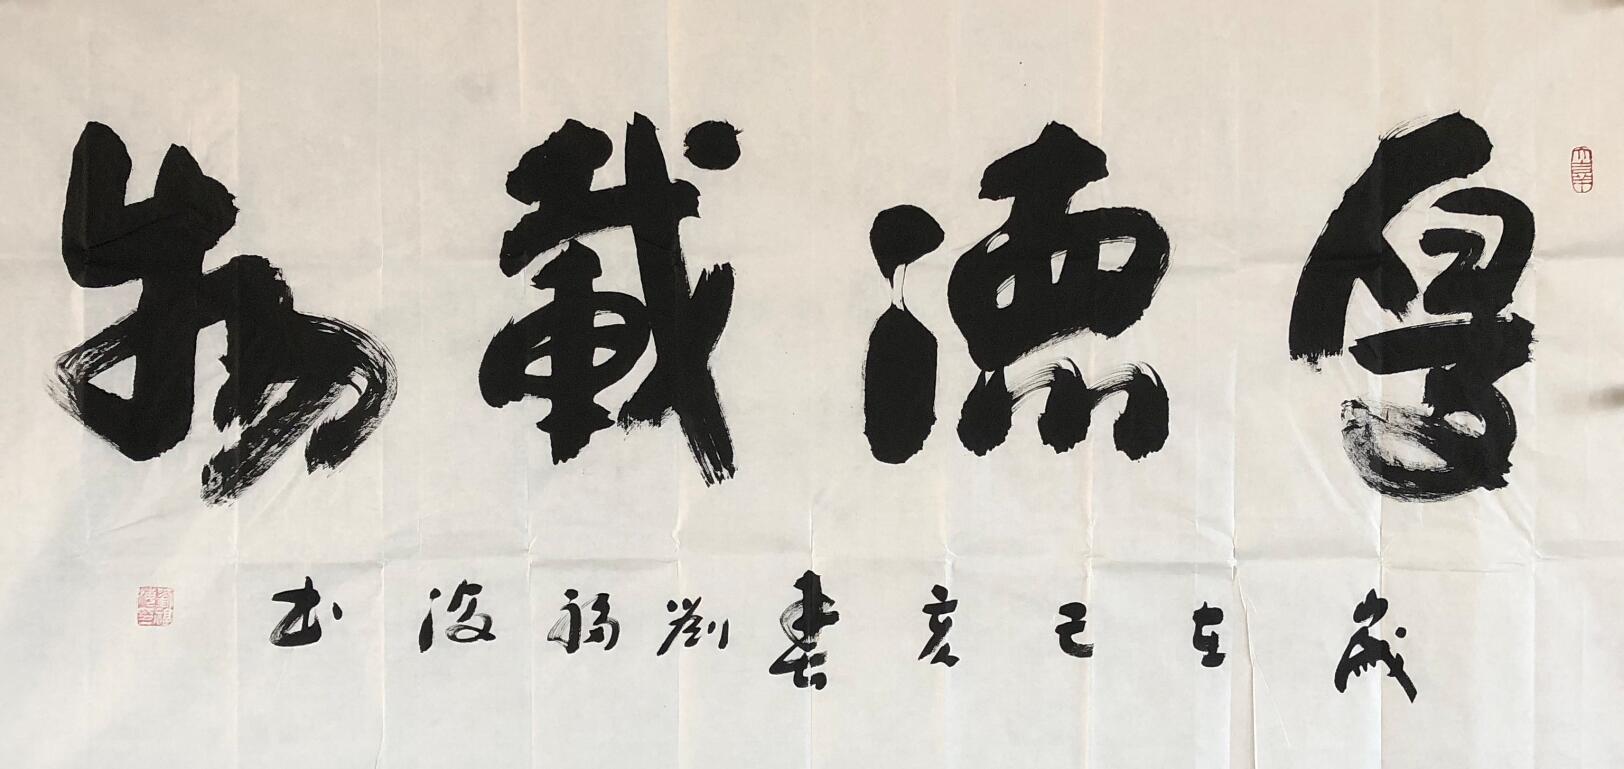 厚德載物
歲在己亥春劉福俊书